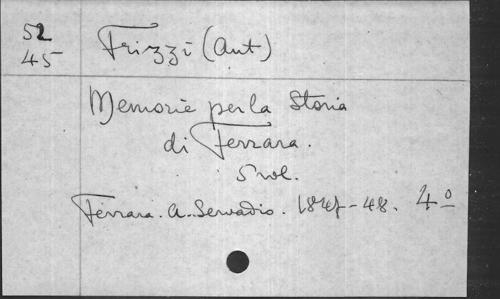 52
45
Frizzi (Ant)
Memorie per la Storia
di Ferrara.
5 vol.
Ferrara. A. Servadio. 1847-48. 4º